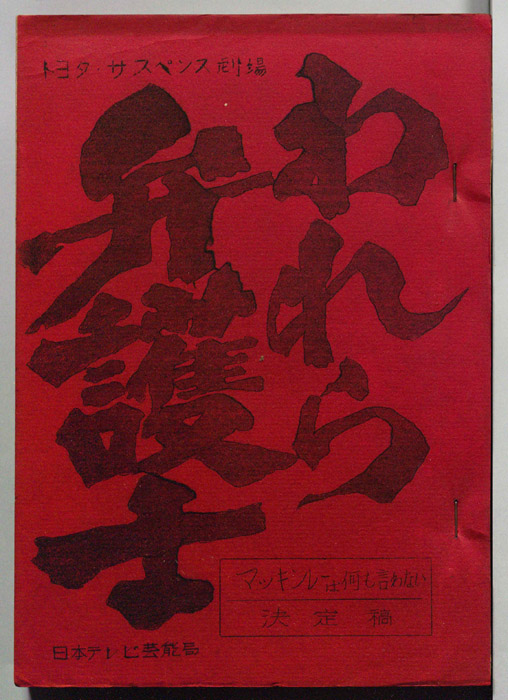 トヨタ・サスペンス劇場
われら
弁護士
マッキンレーは何も言わない
決定稿
日本テレビ芸能局